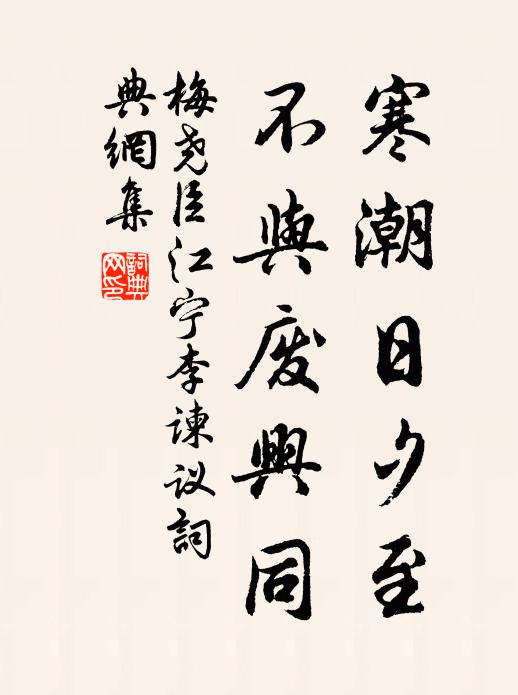 寒潮日夕至
不與废興同
梅尧臣江宁李谏议詞
典網集
詞典
网印